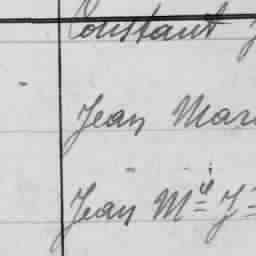 Constant J
Jean Mar
Jean M^{ie} J^{n}